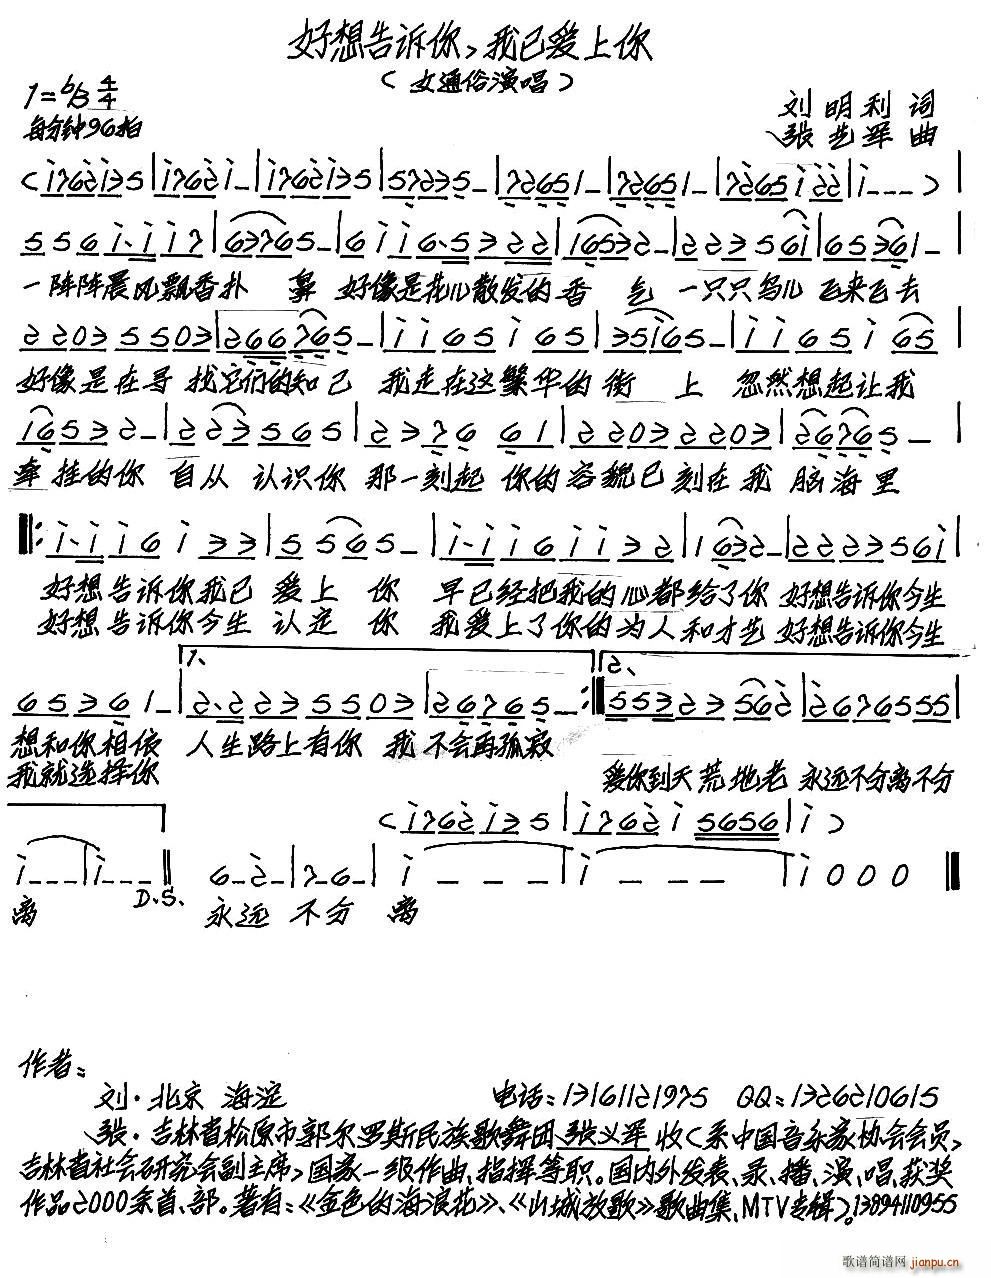 好想告诉你,我已爱上你
(女通俗演唱)
1=♭B 4/4
每分钟96拍
刘明利 词
张艺军 曲
一阵阵晨风飘香扑 鼻 好像是花儿散发的香 气 一只只鸟儿飞来飞去
好像是在寻找它们的知己 我走在这繁华的街 上 忽然想起让我
牵挂的你 自从 认识你 那一刻起 你的容貌已刻在我 脑海里
好想告诉你我已 爱上 你 早已经把我的心都给了你 好想告诉你今生
好想告诉你今生 认定 你 我爱上了你的为人和才艺 好想告诉你今生
1、
2、
想和你相依 人生路上有你 我 不会再孤寂
我就选择你
爱你到天荒地老 永远不分离不分
D.S.
离 永远 不分 离
作者:
刘·北京 海淀 电话:13161121975 QQ:1326210615
张·吉林省松原市郭尔罗斯民族歌舞团张义军收(系中国音乐家协会会员,
吉林省社会研究会副主席,国家一级作曲、指挥等职。国内外发表、录、播、演、唱、获奖
作品2000余首、部。著有:《金色的海浪花》、《山城放歌》歌曲集、MTV专辑)。13894110955
歌谱简谱网 jianpu.cn